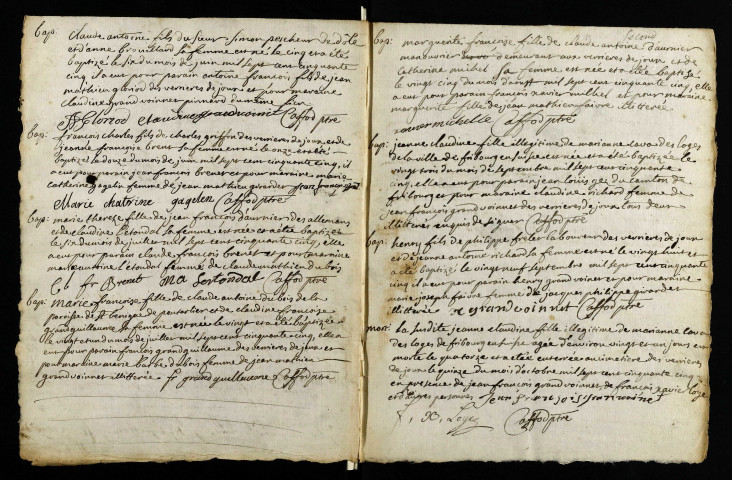 bap: claude antoine fils du sieur simon pescheur de dôle
et d'anne brouillard sa femme est né le cinq et a été
baptizé le six du mois de juin mil sept cent cinquante
cinq il a eut pour parain antoine françois fils de jean
mathieu gloriod des verrieres de joux et pour maraine
claudine grand voinnet du même lieu
affod ptre
bap: françois charles fils de charles griffon des verrieres de joux, et de
jeanne françoise brenet sa femme est né le onze et a été
baptizé le douze du mois de juin mil sept cent cinquante cinq, il
a eut pour parain jean françois brenet et pour maraine marie
catherine gagelin femme de jean mathieu girardet
Marie chatrine gagelin affod ptre
bap: marie therese fille de jean françois d'aurnier des allemans
et de claudine l'étondal sa femme est née et a été baptizée
le six du mois de juillet mil sept cent cinquante cinq, elle
a eut pour parain claude françois brenet et pour maraine
marie antoine l'étondal femme de claude mathieu du bois
C b fr Brenet affod ptre
bap: marie françoise fille de claude antoine du bois de la
paroisse de st benigne de pontarlier et de claudine françoise
grandguillaume sa femme est née le vingt et a été baptizée
le vingt et un du mois de juillet mil sept cent cinquante cinq, elle a
eut pour parain françois grandguillaume des verrieres de joux et
pour maraine marie barbe du bois femme de jean mathieu
grandvoinnet illitterée fr grandguilleaume affod ptre
second
bap: marguerite françoise fille de claude antoine d'aurnier
manouvrier demeurant aux verrieres de joux et de
catherine michel sa femme est née et a été baptizée
le vingt cinq du mois d'août mil sept cent cinquante cinq, elle
a eut pour parain françois xavier michel et pour maraine
marguerite fille de jean mathieu faivre illitterée
xavier michelle affod ptre
bap: jeanne claudine fille illegitime de marianne des loges
de la ville de fribourg en suisse est née et a été baptizée le
vingt trois du mois de septembre mil sept cent cinquante
cinq, elle a eut pour parain jean louis du canton de
fribourg et pour maraine claudine richard femme de
jean françois grandvoinnet des verrieres de joux tous deux
illitterés enquis de signer affod ptre
bap: henry fils de philippe frelet laboureur des verrieres de joux
et de jeanne antoine richard sa femme est né le vingt huit et
a été baptizé le vingt neuf septembre mil sept cent cinquante
cinq il a eut pour parain henry grandvoinnet et pour maraine
marie joseph faivre femme de jacques philippe girardet
illitterée h grandvoinnet affod ptre
mort: la susdite jeanne claudine fille illegitime de marianne
des loges de fribourg en suisse agée d'environ vingt et un jours est
morte le quatorze et a été enterrée au cimetiere des verrieres
de joux le quinze du mois d'octobre mil sept cent cinquante cinq
en presence de jean françois grandvoinnet, de françois xavier loge
et d'autres personnes jean françois grandvoinnet
f. x. Loge affod ptre